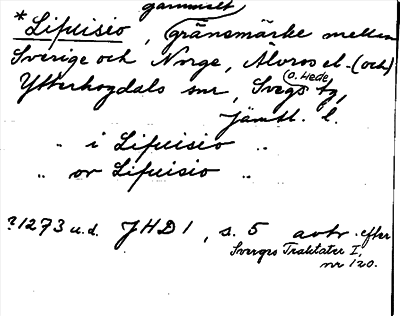 gammalt
*Lipuisio, gränsmärke mellan
Sverige och Norge, Älvros el. (och)
Ytterhogdals snr, Svegs (o. Hede) tg,
Jämtl. l.
„ i Lipuisio „
„ or Lipuisio „
?1273 u.d. JHD 1, s. 5 avtr. efter
Sverges Traktater I,
nr 120.